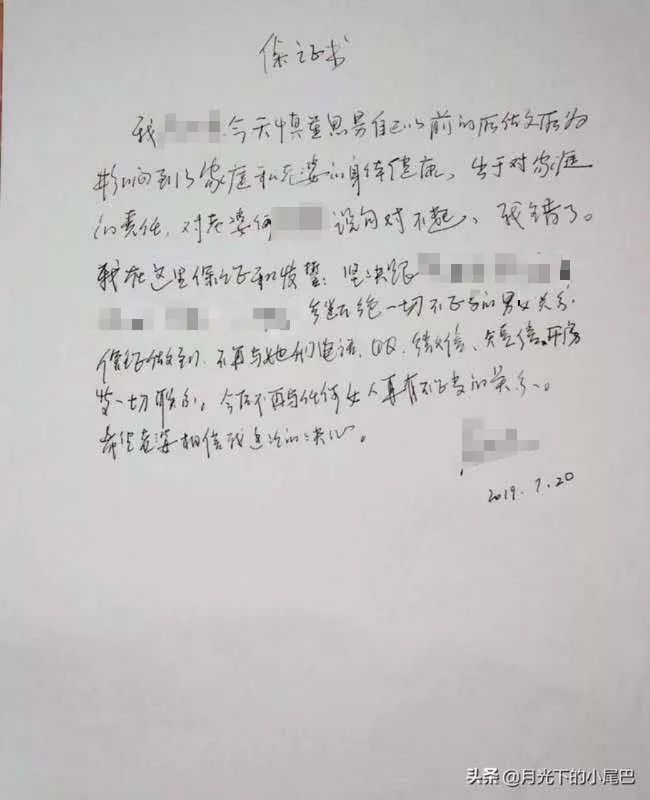 保证书
我 今天慎重思易自己以前的所做文所为
影响到了家庭和老婆的身体健康,出于对家庭
的责任,对老婆何 说句对不起、我错了。
我在这里保证和发誓:坚决跟
断绝一切不正当的男女关系
保证做到,不再与她们电话、QQ、微信、短信、开房
等一切联系。今后不再与任何女人再有不正当的关系。
希望老婆相信我这次的决心。
2019.7.20
头条 @月光下的小尾巴